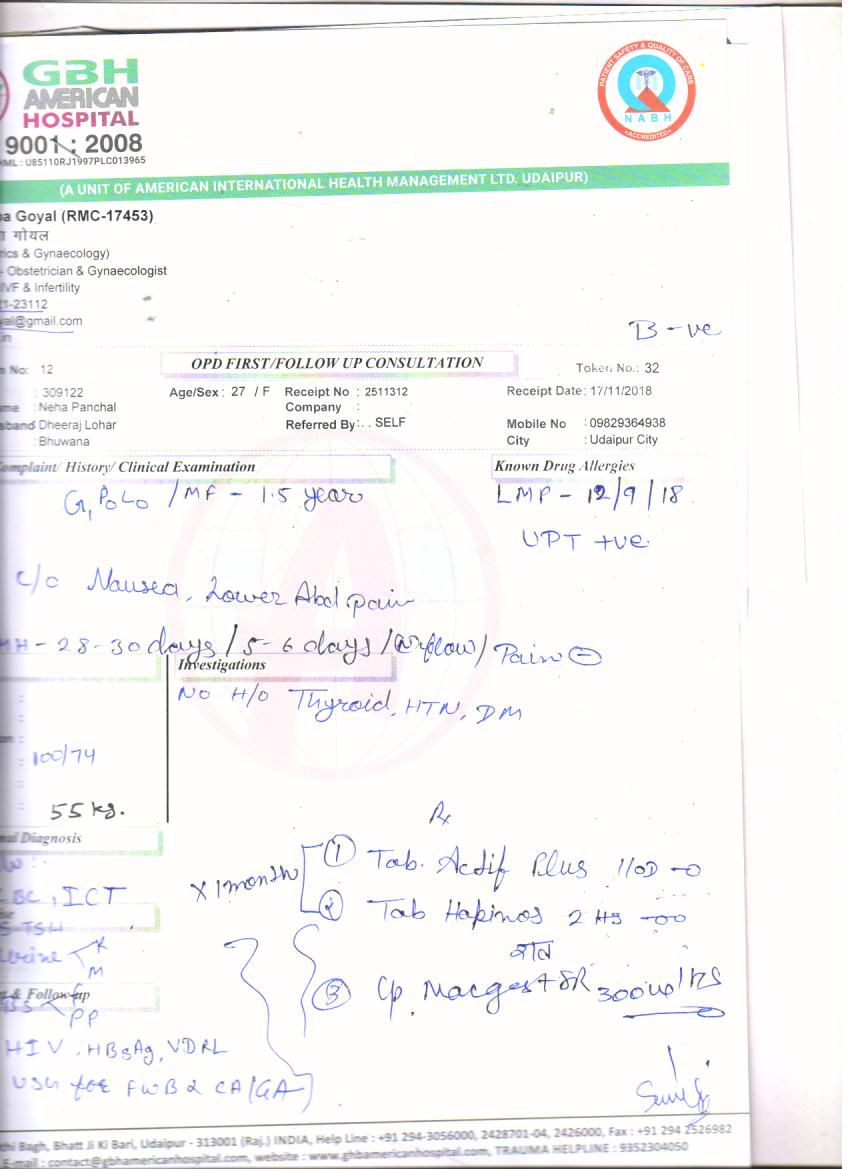 GBH
AMERICAN
HOSPITAL
9001 : 2008
HML : U85110RJ1997PLC013965
PATIENT SAFETY & QUALITY OF CARE
NABH
ACCREDITED
(A UNIT OF AMERICAN INTERNATIONAL HEALTH MANAGEMENT LTD. UDAIPUR)
a Goyal (RMC-17453)
गोयल
rics & Gynaecology)
- Obstetrician & Gynaecologist
IVF & Infertility
21-23112
al@gmail.com
in
B -ve
n No: 12
OPD FIRST/FOLLOW UP CONSULTATION
Token No.: 32
: 309122 Age/Sex : 27 / F Receipt No : 2511312 Receipt Date: 17/11/2018
ame : Neha Panchal Company :
sband Dheeraj Lohar Referred By : . . SELF Mobile No : 09829364938
: Bhuwana City : Udaipur City
Complaint/ History/ Clinical Examination Known Drug Allergies
G1 P0 L0 / MF - 1.5 year LMP - 12/9/18
UPT +ve
c/o Nausea, Lower Abd pain
MH - 28-30 days / 5-6 days / (N) flow / Pain ⊖
Investigations
No H/O Thyroid, HTN, DM
: 100/74
: 55 kg.
nal Diagnosis
Rx
x 1 month
① Tab. Actif Plus 1 OD -0
② Tab Hapinos 2 HS -00
CBC, ICT
S-TSH
Urine R
M
रात
③ Cp. Macgest SR 300 1 HS
t & Follow-up
BS F
PP
HIV, HBsAg, VDRL
USG for FWB & CA (GA)
thi Bagh, Bhatt Ji Ki Bari, Udaipur - 313001 (Raj.) INDIA, Help Line : +91 294-3056000, 2428701-04, 2426000, Fax : +91 294 2526982
E-mail : contact@gbhamericanhospital.com, website : www.ghbamericanhospital.com, TRAUMA HELPLINE : 9352304050